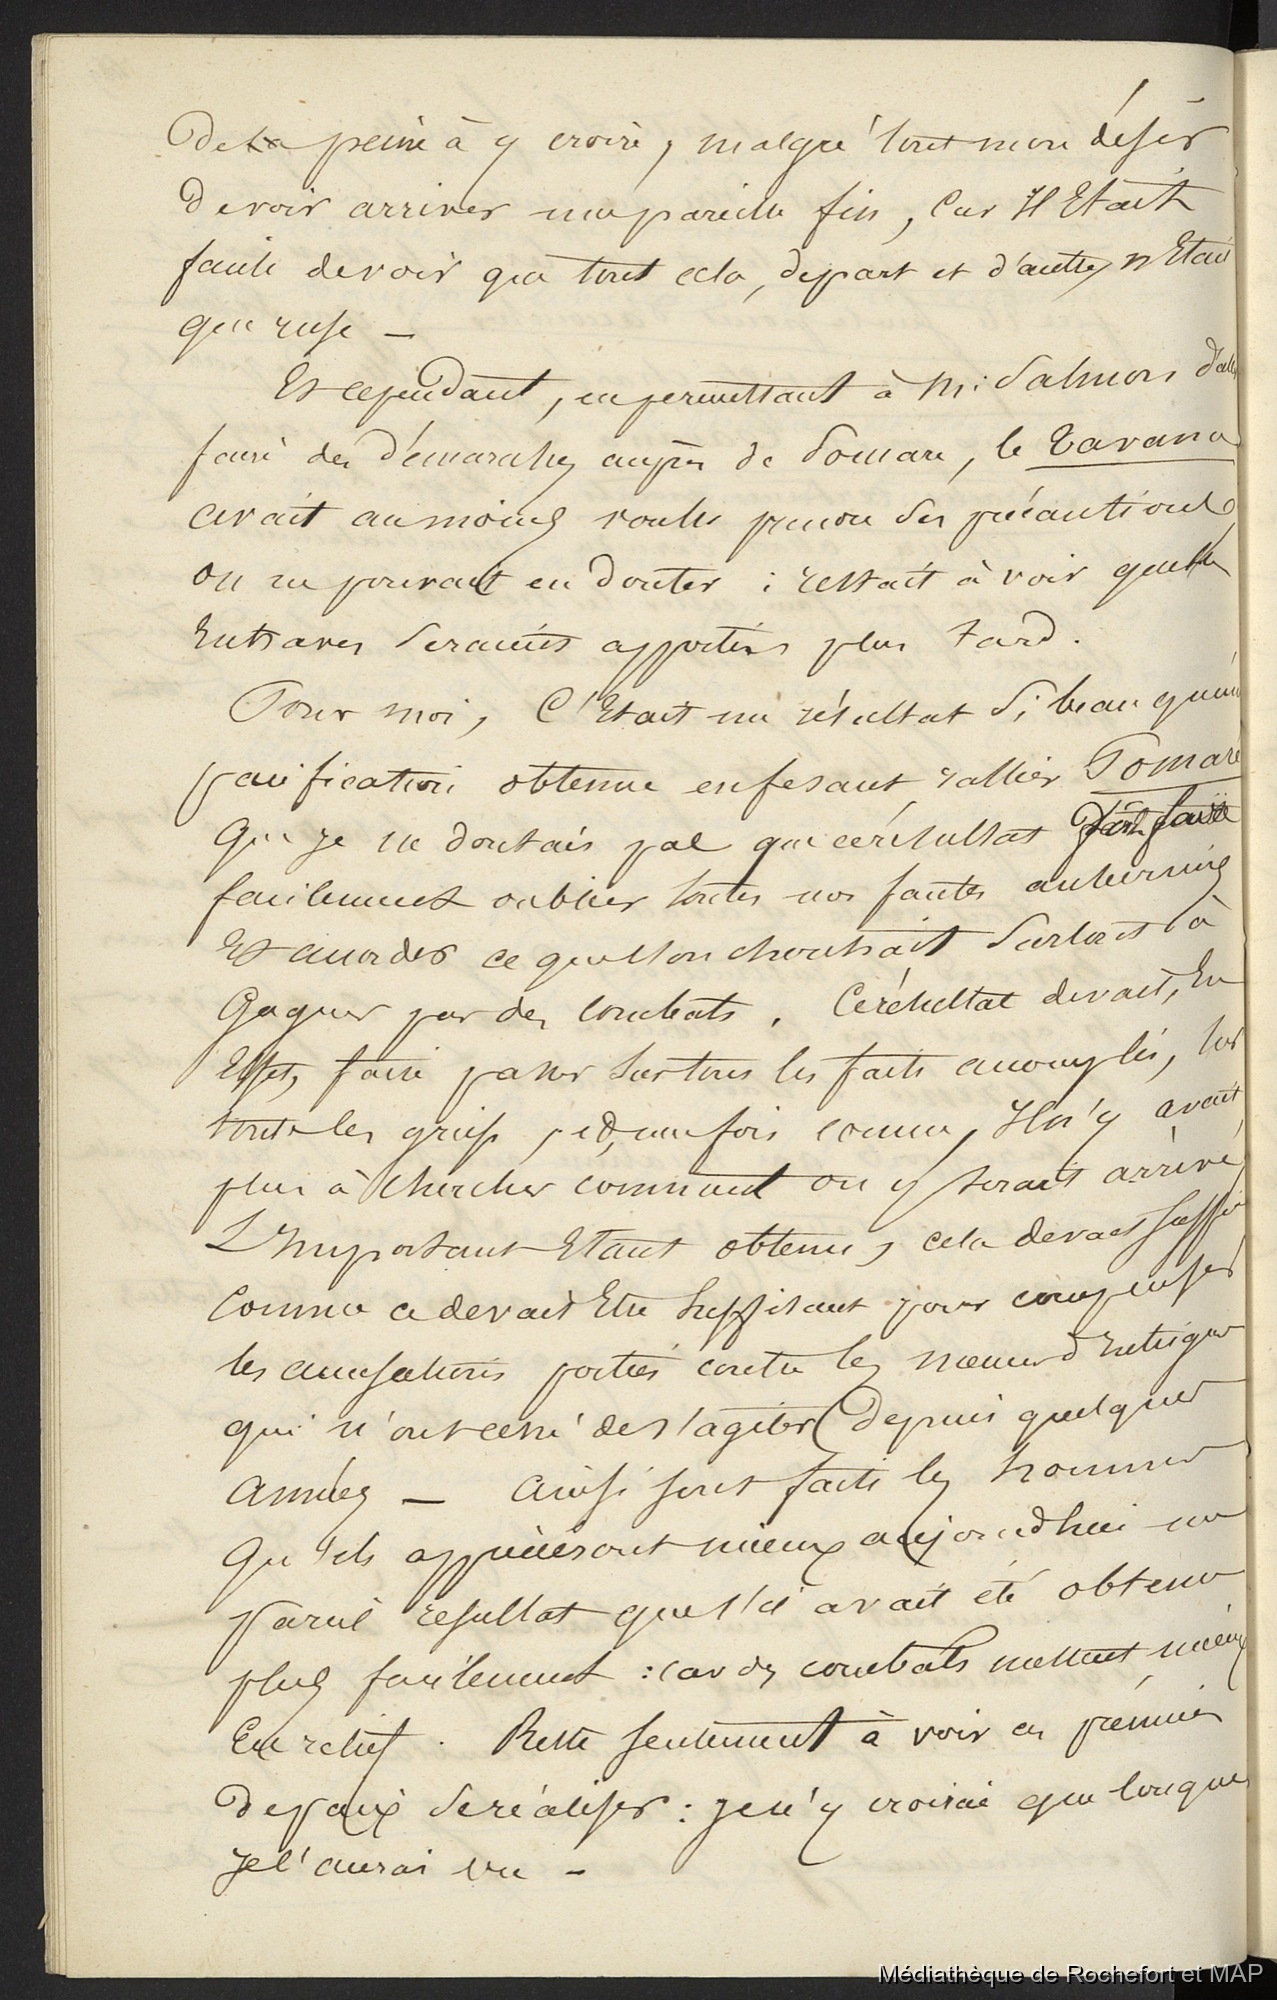 De la peine à y croire, malgré tout mon désir
de voir arriver une pareille fin, Car Il Etait
facile de voir que tout cela, depart et d'autre, n'Etait
que ruse —
Et cependant, en permettant à Mr Salmon d'aller
faire des démarches auprès de Pomare, le Tavana
avait au moins voulu prendre ses précautions,
on ne pouvait en douter : restait à voir quelles
Entraves seraient apportées plus tard.
Pour moi, C'Etait un résultat si beau qu'une
pacification obtenue enfesant rallier Pomaré
que je ne doutais pas que cerésultat fît
facilement oublier toutes nos fautes antérieures
Et accorder ce quel'on cherchait surtout à
Gagner par des Combats. Cerésultat devait, En
Effet, faire passer surtous les faits accomplis, sur
toutes les griefs, et, une fois connu, Il n'y avait
plus à chercher comment on y serait arrivé,
L'Important Etant obtenu, cela devait suffire
Comme ce devait Etre suffisant pour compenser
les accusations portées contre les menees d'Intrigue
qui n'ont cessé des'agiter depuis quelques
années — Ainsi sont faits les hommes
Qu'ils apprécieront mieux aujourdhui un
pareil résultat ques'il avait été obtenu
plus facilement : car des combats mettent mieux
En relief. Reste seulement à voir ces prémices
depaix seréaliser : Je n'y croirai que lorsque
Je l'aurai vu —
Médiathèque de Rochefort et MAP